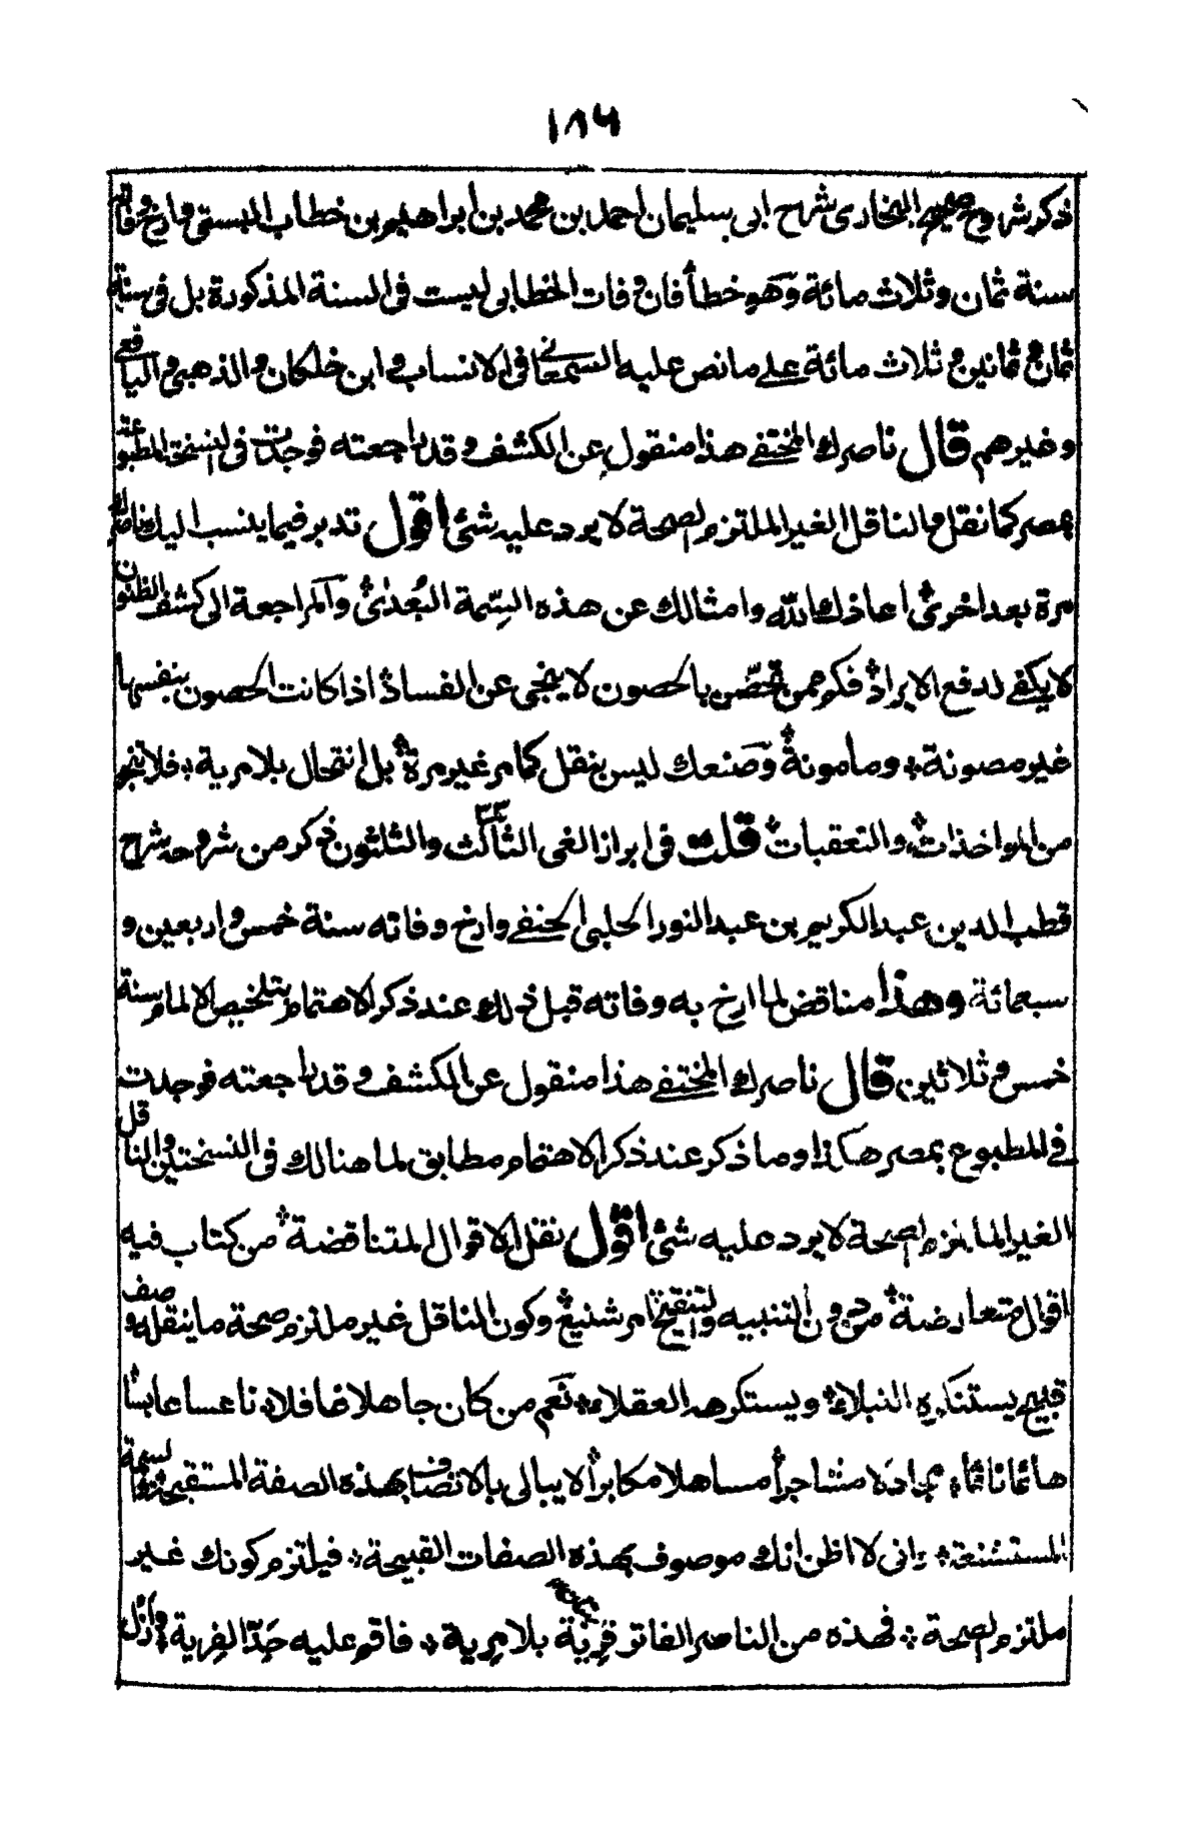 ١٨٦
ذكر شروح صحيح البخارى شرح ابى سليمان احمد بن محمد بن ابراهيم بن خطاب البستى وارخ وفاته
سنة ثمان وثلاث مائة وهو خطأ فان وفات الخطابى ليست فى السنة المذكورة بل فى سنة
ثمان وثمانين وثلاث مائة على ما نص عليه السمعانى فى الانساب وابن خلكان والذهبى واليافعى
وغيرهم قال ناصرك المختفى هذا منقول عن الكشف وقد راجعته فوجدت فى النسخة المطبوعة
بمصر كما نقل والناقل الغير الملتزم لصحة لا يرد عليه شئ اقول تدبر فيما ينسب اليك ناصرك
مرة بعد اخرىٰ اعاذك الله وامثالك عن هذه السِّمة البُعدىٰ والمراجعة الى كشف الظنون
لا يكفى لدفع الايراد فكم ممن تحصّن بالحصون لا ينجى عن الفساد اذا كانت الحصون بنفسها
غير مصونة ومأمونةٌ وصنعك ليس بنقل كما مر غير مرة بل انتحال بلا مرية فلا تنجو
من المواخذات والتعقبات قلت فى ابراز الغى الثالث والثلثون ذكر من شروحه شرح
قطب الدين عبد الكريم بن عبد النور الحلبى الحنفى وارخ وفاته سنة خمس واربعين و
سبعمائة وهذا مناقض لما ارخ به وفاته قبل ذلك عند ذكر الاهتمام بتلخيص الالمام سنة
خمس وثلاثين قال ناصرك المختفى هذا منقول عن الكشف وقد راجعته فوجدت
فى المطبوع بمصر هكذا وما ذكر عند ذكر الاهتمام مطابق لما هنالك فى النسختين والناقل
الغير الملتزم لصحة لا يرد عليه شئ اقول نقل الاقوال المتناقضة من كتاب فيه
اقوال متعارضة من دون التنبيه والتنقيح امر شنيع وكون الناقل غير ملتزم صحة ما ينقله وصف
قبيح يستنكره النبلاء ويستكرهه العقلاء نَعَم من كان جاهلا غافلا ناعسا عابسًا
هائما نائما مجادلا متشاجرا مساهلا مكابرا لا يبالى بالاتصاف بهذه الصفة المستقبحة والسمة
المستشنعة وانى لا اظن انك موصوف بهذه الصفات القبيحة فيلتزم كونك غير
ملتزم لصحة فهذه من الناصر الفاتر فِريَة بلا مِرية فاقم عليه حَدّ الفِرية وأزل